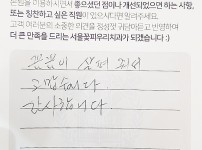 본원을 이용하시면서 좋으셨던 점이나 개선되었으면 하는 사항,
또는 칭찬하고 싶은 직원이 있으시다면 말해주세요.
고객 여러분의 소중한 의견을 정성껏 귀담아듣고 반영하여
더 큰 만족을 드리는 서울꽃피우리치과가 되겠습니다 :)
꼼꼼히 살펴 줘서
고맙습니다.
감사합니다.